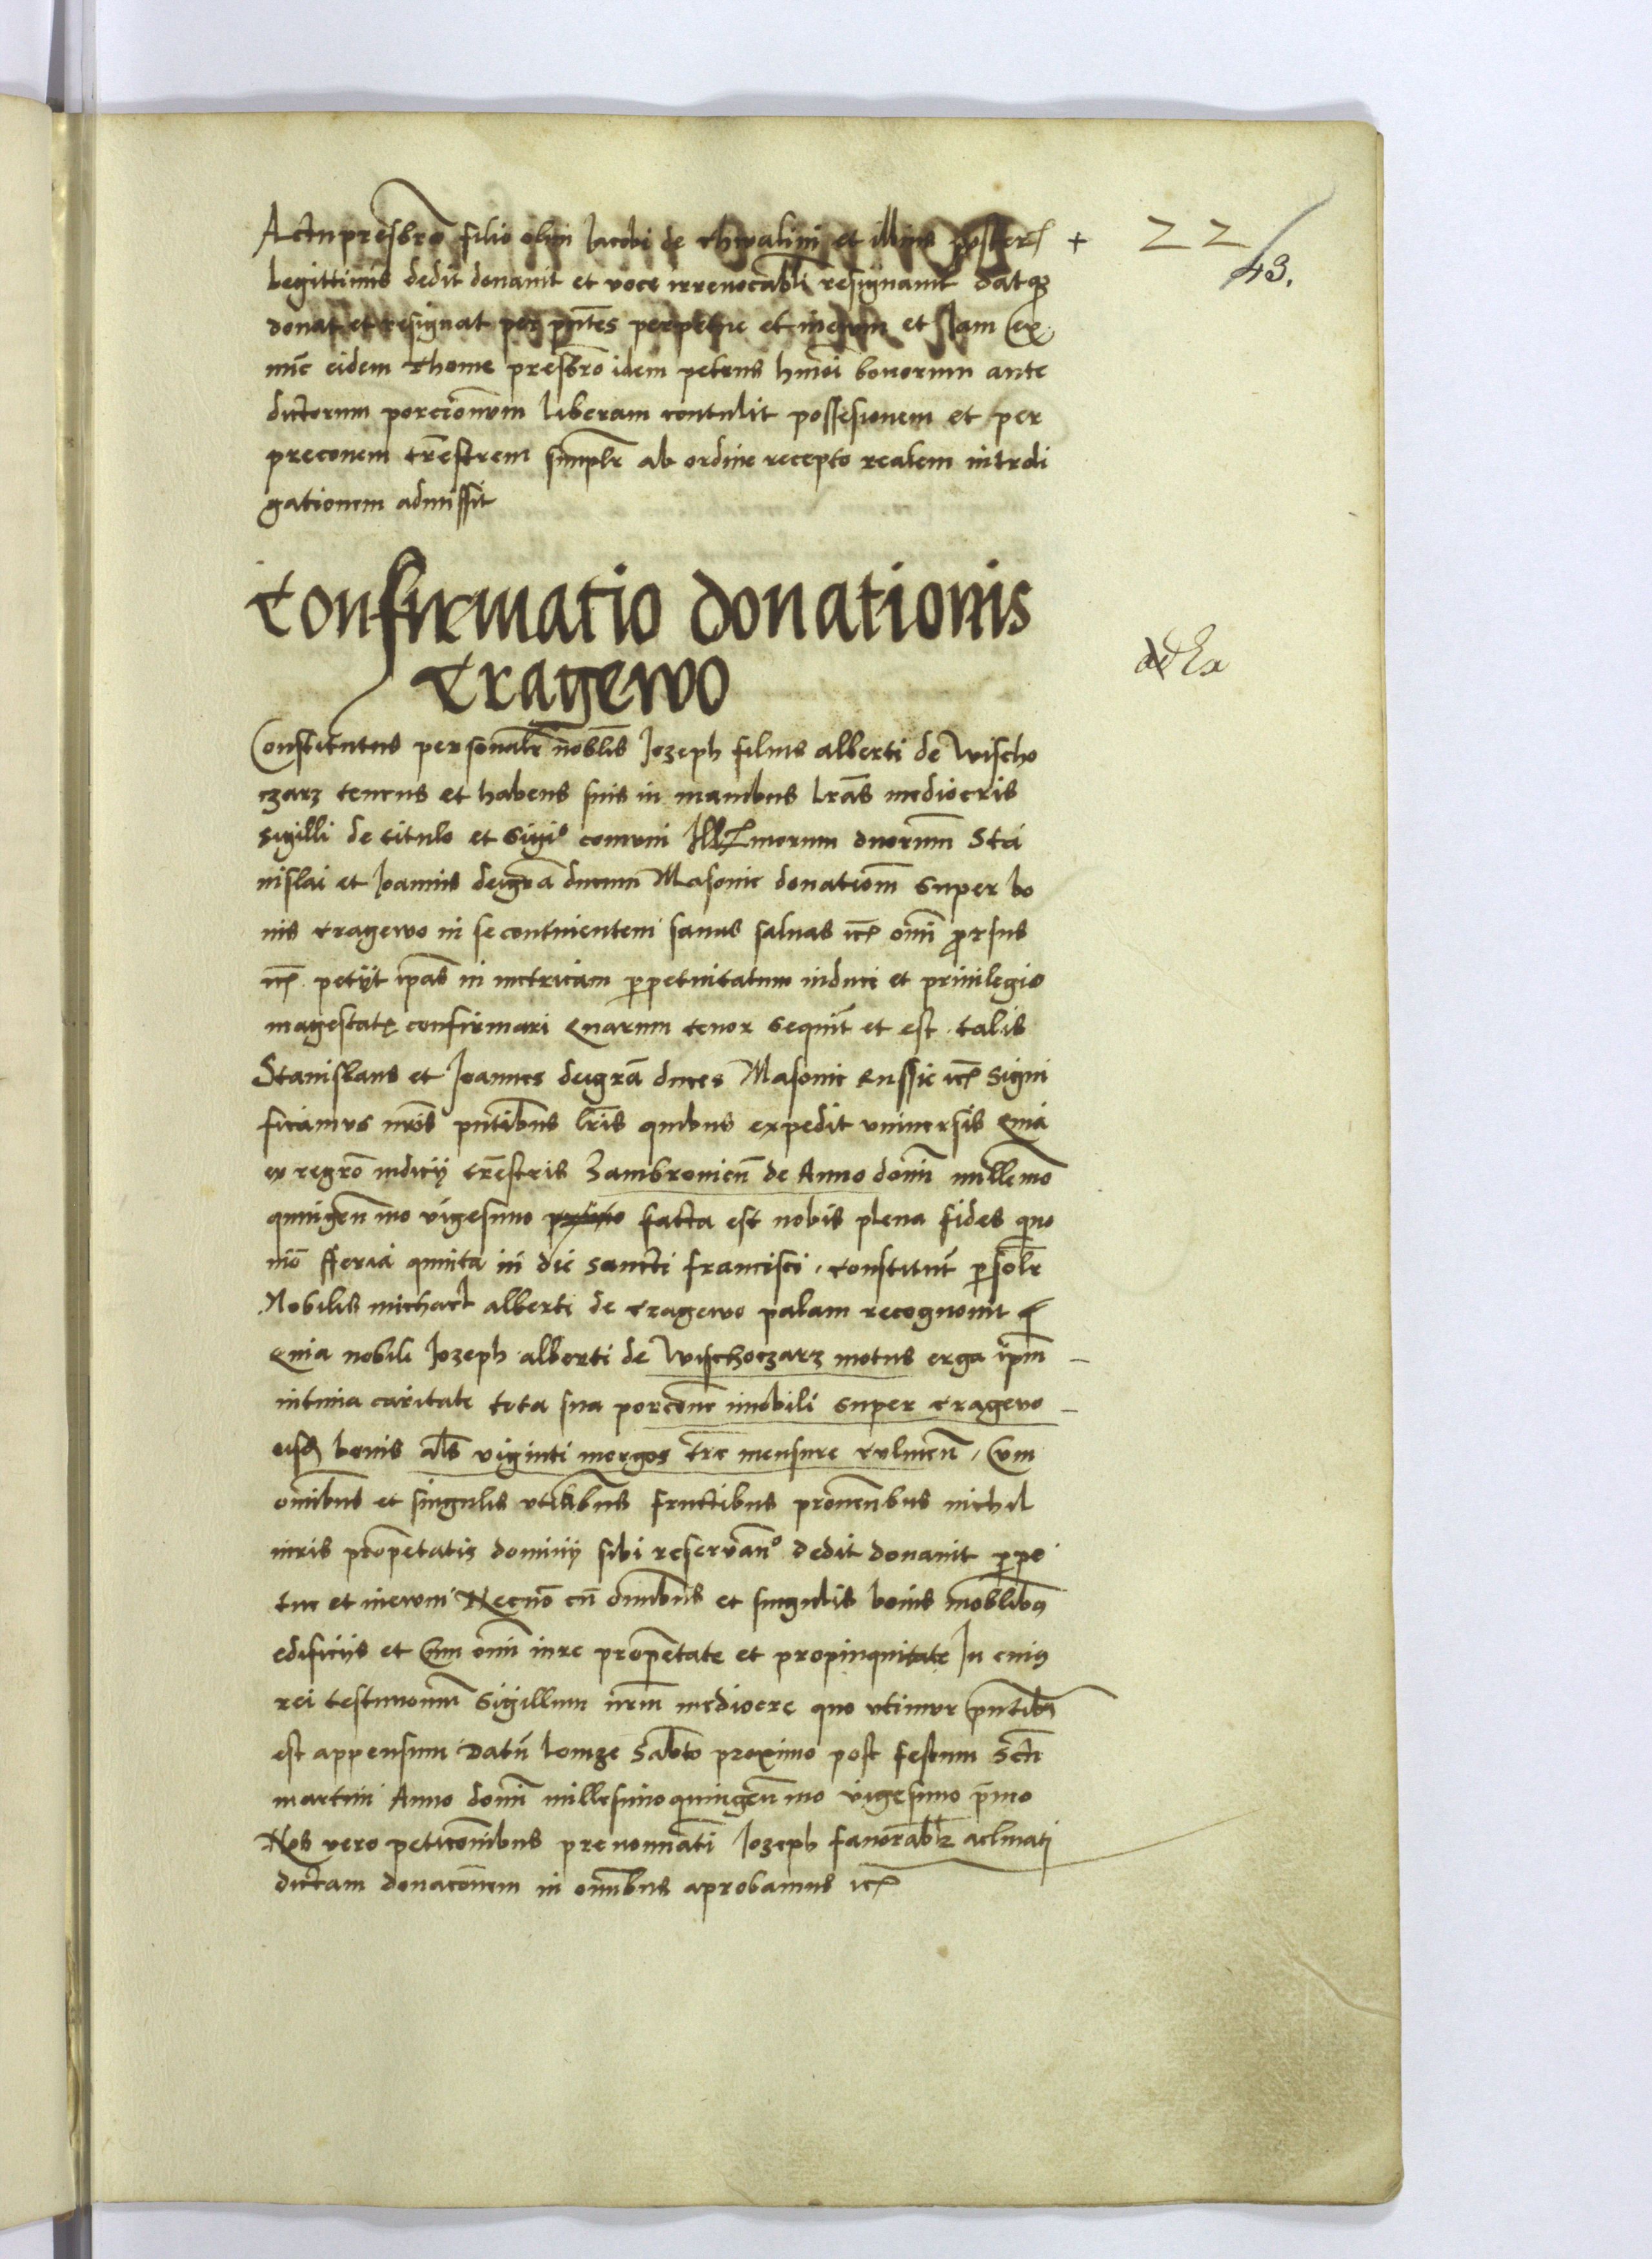 Actu presbro filio olim Jacobi de Chwalini et illius poster +
22
43.
Legittimis dedit donauit et voce irreuocabli resignauit datqz
donat et resignat per pntes perpetue et in euum et Jam Ex
nuc eidem Thome presbro idem petrus hmoi bonorum ante
dictorum porcionum liberam contulit possesionem et per
preconem trestrem simplr ab ordine recepto realem intrdi
gationem admissit
Confirmatio donationis
Cragewo
Constitutus personalr noblis Jozeph filius alberti de Wischo
czarz tenens et habens suis in manibus lras mediocris
sigilli de titulo et sigio comuni Illmorum duorum Sta
nislai et Joannis dei gra ducum Masouie donationem super bo
nis Cragewo in se continentem sanas saluas etc omi prorsus
etc petyt ipas in metricam perpetuitatum induci et priuilegio
magestate confirmari Quarum tenor sequit et est talis
Stanislaus et Joannes dei gra duces Masouie Russie etc Signi
ficamus nris pntibus lris quibus expedit vniuersis Quia
ex regro iudicij trestris Zambrouien de Anno domi millemo
quingen mo vigesimo facta est nobis plena fides quo
mo fferia quinta in die sancti francisci constitut psolr
Nobilis michael alberti de Cragewo palam recognouit
Quia nobili Jozeph alberti de Wischoczarz motus erga ipm
intima caritate tota sua porcone imobili super Cragewo
eisd bonis als viginti morgos tre mensure Culmen Cum
omibus et singulis vtilibus fructibus prouenbus nichil
iuris propetatis dominij sibi reseruano dedit donauit perpe
tue et in euum Necno cu omibus et singulis bonis moblibus
edificijs et Cum omi iure propetate et propinquitate In cuius
rei testimonium Sigillum nrm mediocre quo vtimur pntibus
est appensum Datu Lomze Sabto proximo post festum Scti
martini Anno domi millesimo quingen mo vigesimo pmo
Nos vero peticonibus prenominati Jozeph fauorablr aclinati
dictam donaconem in omibus aprobamus etc